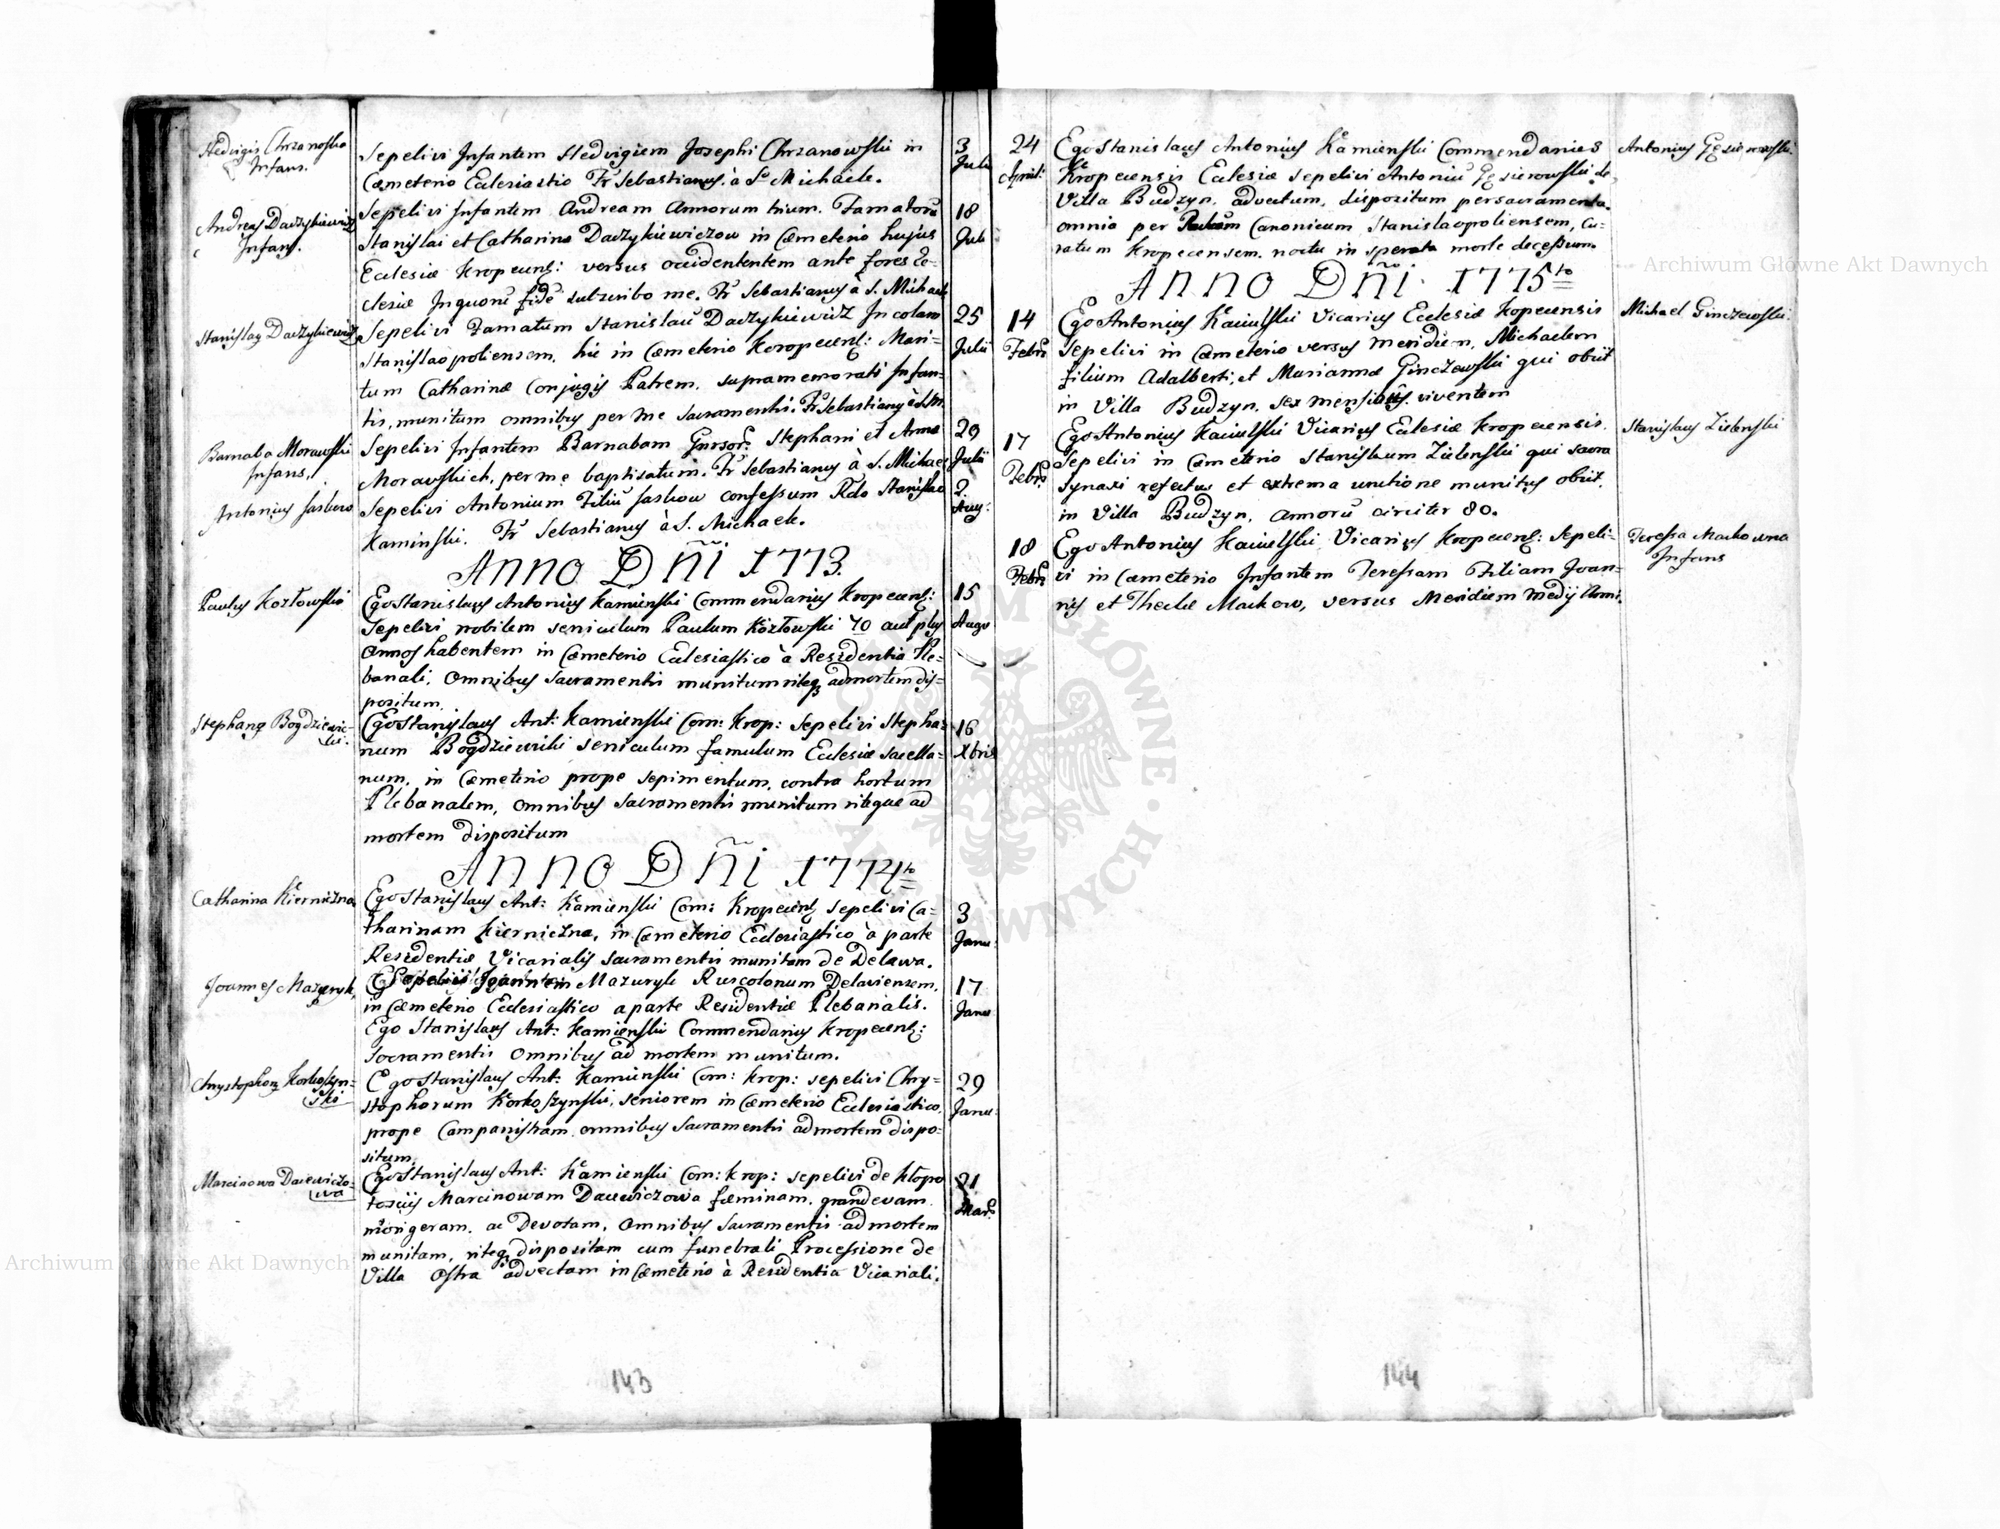 Hedvigis Chrzanoska
Infans.
Sepelivi Infantem Hedvigiem Josephi Chrzanowski in
Cæmeterio Ecclesiastio Fr Sebastianus à So Michaele.
3
Juli
Andreas Daczykiewicz
Infans.
Sepelivi Infantem Andream Annorum trium. Famatorũ
Stanislai et Catharina Daczykiewiczow in Cæmeterio hujus
Ecclesiæ Kropecens: versus occidententem ante fores Ec-
clesiæ Inquorũ fidẽ subscribo me. Fr Sebastianus à S. Michaele
18
Juli
Stanislaus Daczykiewicz
Sepelivi Famatum Stanislaũ Daczykiewicz Incolam
Stanislaopoliensem, hic in Cæmeterio Koropecens: Mari-
tum Catharinæ Conjugis Patrem, supramemorati Infan-
tis, munitum omnibus per me Sacramentis. Fr Sebastianus à S. M.
25
Julii
Barnaba Morawski
Infans.
Sepelivi Infantem Barnabam Stephani et Anna
Morawskich, per me baptisatum. Fr Sebastianus à S. Michae
29
Julii
Antonius Jaskow
Sepelivi Antonium Filiũ Jaskow confessum Rdo Stanislao
Kaminski. Fr Sebastianus à S. Michaele.
2.
Aug:
Anno Dñi 1773.
Paulus Kozłowski
Ego Stanislaus Antonius Kamienski Commendarius Kropecens:
Sepelivi nobilem seniculum Paulum Kozłowski 70 aut plus
Annos habentem in Cæmeterio Ecclesiastico à Residentia Ple-
banali, Omnibus Sacramentis munitum riteq admortem dis-
positum.
15
Augu
Stephang Bogdziewic-
ki.
Ego Stanislaus Ant: Kamienski Com: Krop: Sepelivi Stepha-
num Bogdziewicki seniculum famulum Ecclesiæ sacella-
num, in Cæmeterio prope sepimentum, contra hortum
Plebanalem, omnibus Sacramentis munitum riteque ad
mortem dispositum
16
Xbris
Anno Dñi 1774to
Catharina Kierniczna
Ego Stanislaus Ant: Kamienski Com: Kropecens sepelivi Ca-
tharinam Kierniczna, in Cæmeterio Ecclesiastico à parte
Residentiæ Vicarialis Sacramentis munitam de Delawa.
3
Janu:
Joannes Mazuryk
Sepelivi Joannem Mazuryk Ruscolonum Delaviensem,
in Cæmeterio Ecclesiastico a parte Residentiæ Plebanalis.
Ego Stanislaus Ant: Kamienski Commendarius Kropecens:
Sacramentis Omnibus ad mortem munitum.
17
Janu
Chrystophorg Korkoszyn-
ski
Ego Stanislaus Ant: Kamienski Com: Krop: sepelivi Chry-
stophorum Korkoszynski, seniorem in Cæmeterio Ecclesiastico,
prope Campanisham omnibus Sacramentis ad mortem dispo-
situm.
29
Janu:
Marcinowa Dacewiczo-
wa
Ego Stanislaus Ant: Kamienski Com: Krop: sepelivi de Kłopo
tosciis Marcinowam Dacewiczowa fæminam, grandevam
morigeram, ac Devotam, Omnibus Sacramentis ad mortem
munitam, riteq dispositam cum funebrali Processione de
Villa Ostra advectam in Cæmeterio à Residentia Vicariali.
21
Mar:
143
24
April:
Ego Stanislaus Antonius Kamienski Commendaries
Kropecensis Eclesiæ sepelivi Antoniũ Gęsierowski de
Villa Budzyn, advectum, dispositum per sacramenta
omnia per Canonicum Stanislaopoliensem, Cu-
ratum Kropecensem noctu in sperata morte decessum
Antonius Gęsierowski
Anno Dñi 1775to
14
Febr:
Ego Antonius Kaciulski Vicarius Ecclesiæ Kopecensis
Sepelivi in Cæmeterio versus meridien, Michaelem
filium Adalberti, et Mariannæ Ginczewski qui obiit
in Villa Budzyn. sex mensibus viventem
Michael Ginczewski
17
Febr:
Ego Antonius Kaciulski Vicarius Eclesiæ Kropecensis.
Sepelivi in Cæmeterio Stanislaum Zielenski qui sacra
Synaxi refectus et extrema unctione munitus obiit,
in Villa Budzyn, Annorũ circiter 80.
Stanislaus Zielenski
18
Febr:
Ego Antonius Kaciulski Vicarius Kropecens: Sepeli-
vi in Cæmeterio Infantem Teressam Filiam Joan-
nis et Theclæ Mackow, versus Meridiem medij Anni.
Teressa Mackowna
Infans
144
Archiwum Główne Akt Dawnych
Archiwum Główne Akt Dawnych
ARCHIWUM GŁÓWNE · AKT DAWNYCH ·